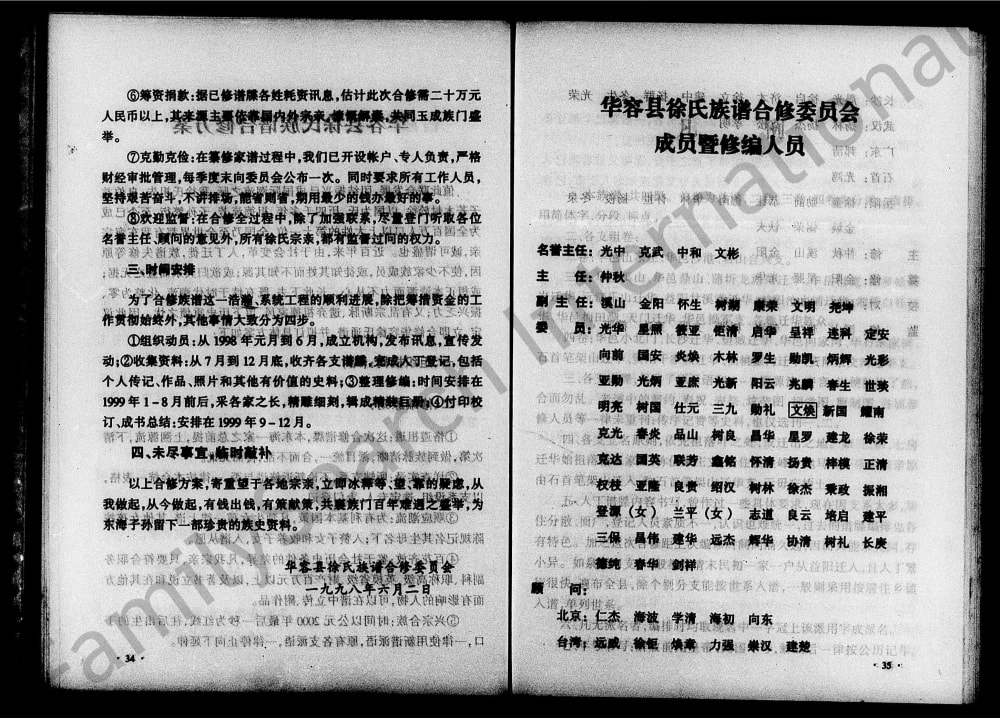 ⑥筹资捐款:据已修谱牒各姓耗资讯息,估计此次合修需二十万元
人民币以上,其来源主要依靠国内外宗亲,慷慨解囊,共同玉成族门盛
举。
⑦克勤克俭:在纂修家谱过程中,我们已开设帐户、专人负责,严格
财经审批管理,每季度末向委员会公布一次。同时要求所有工作人员,
坚持艰苦奋斗,不讲排场,能省则省,期用最少的钱办最好的事。
⑧欢迎监督:在合修全过程中,除了加强联系,尽量登门听取各位
名誉主任、顾问的意见外,所有徐氏宗亲,都有监督过问的权力。
三、时间安排
为了合修族谱这一浩瀚系统工程的顺利进展,除把筹措资金的工
作贯彻始终外,其他事情大致分为四步。
①组织动员:从1998年元月到6月,成立机构,发布讯息,宣传发
动;②收集资料:从7月到12月底,收齐各支谱牒,完成人丁登记,包括
个人传记、作品、照片和其他有价值的史料;③整理修编:时间安排在
1999年1-8月前后,采各家之长,精雕细刻,辑成精辣巨册;④付印校
订、成书总结:安排在1999年9-12月。
四、未尽事宜,临时敲补
以上合修方案,寄重望于各地宗亲,立即冰释等、望、靠的疑虑,从
我做起,从今做起,有钱出钱,有策献策,共襄族门百年难遇之盛举,为
东海子孙留下一部珍贵的族史资料。
华容县徐氏族谱合修委员会
一九九八年六月二日
·34·
华容县徐氏族谱合修委员会
成员暨修编人员
名誉主任:光中 克武 中和 文彬
主 任:仲秋
副 主 任:溪山 金阳 怀生 树湖 康荣 文明 尧坤
委 员:光华 里照 薇亚 钜清 启华 呈祥 连科 定安
向前 国安 炎焕 木林 罗生 勋凯 炳辉 光彩
亚勋 光炳 亚庶 光新 阳云 兆麟 春生 世琰
明亮 树国 仕元 三九 勋礼 文焕 新国 耀南
克光 春炎 品山 树良 昌华 星罗 建龙 徐荣
克达 国英 联芳 鑫铭 怀清 扬贵 梓模 正清
权枝 亚隆 良贵 绍汉 树林 徐杰 秉政 振湘
登源(女) 兰平(女) 志道 良云 培启 建平
三保 昌伟 建华 远杰 辉华 协清 树礼 长庚
德纯 春华 剑祥
顾 问:
北京:仁杰 海波 学清 海初 向东
台湾:远威 徐钜 焕章 力强 崇汉 建楚
·35·